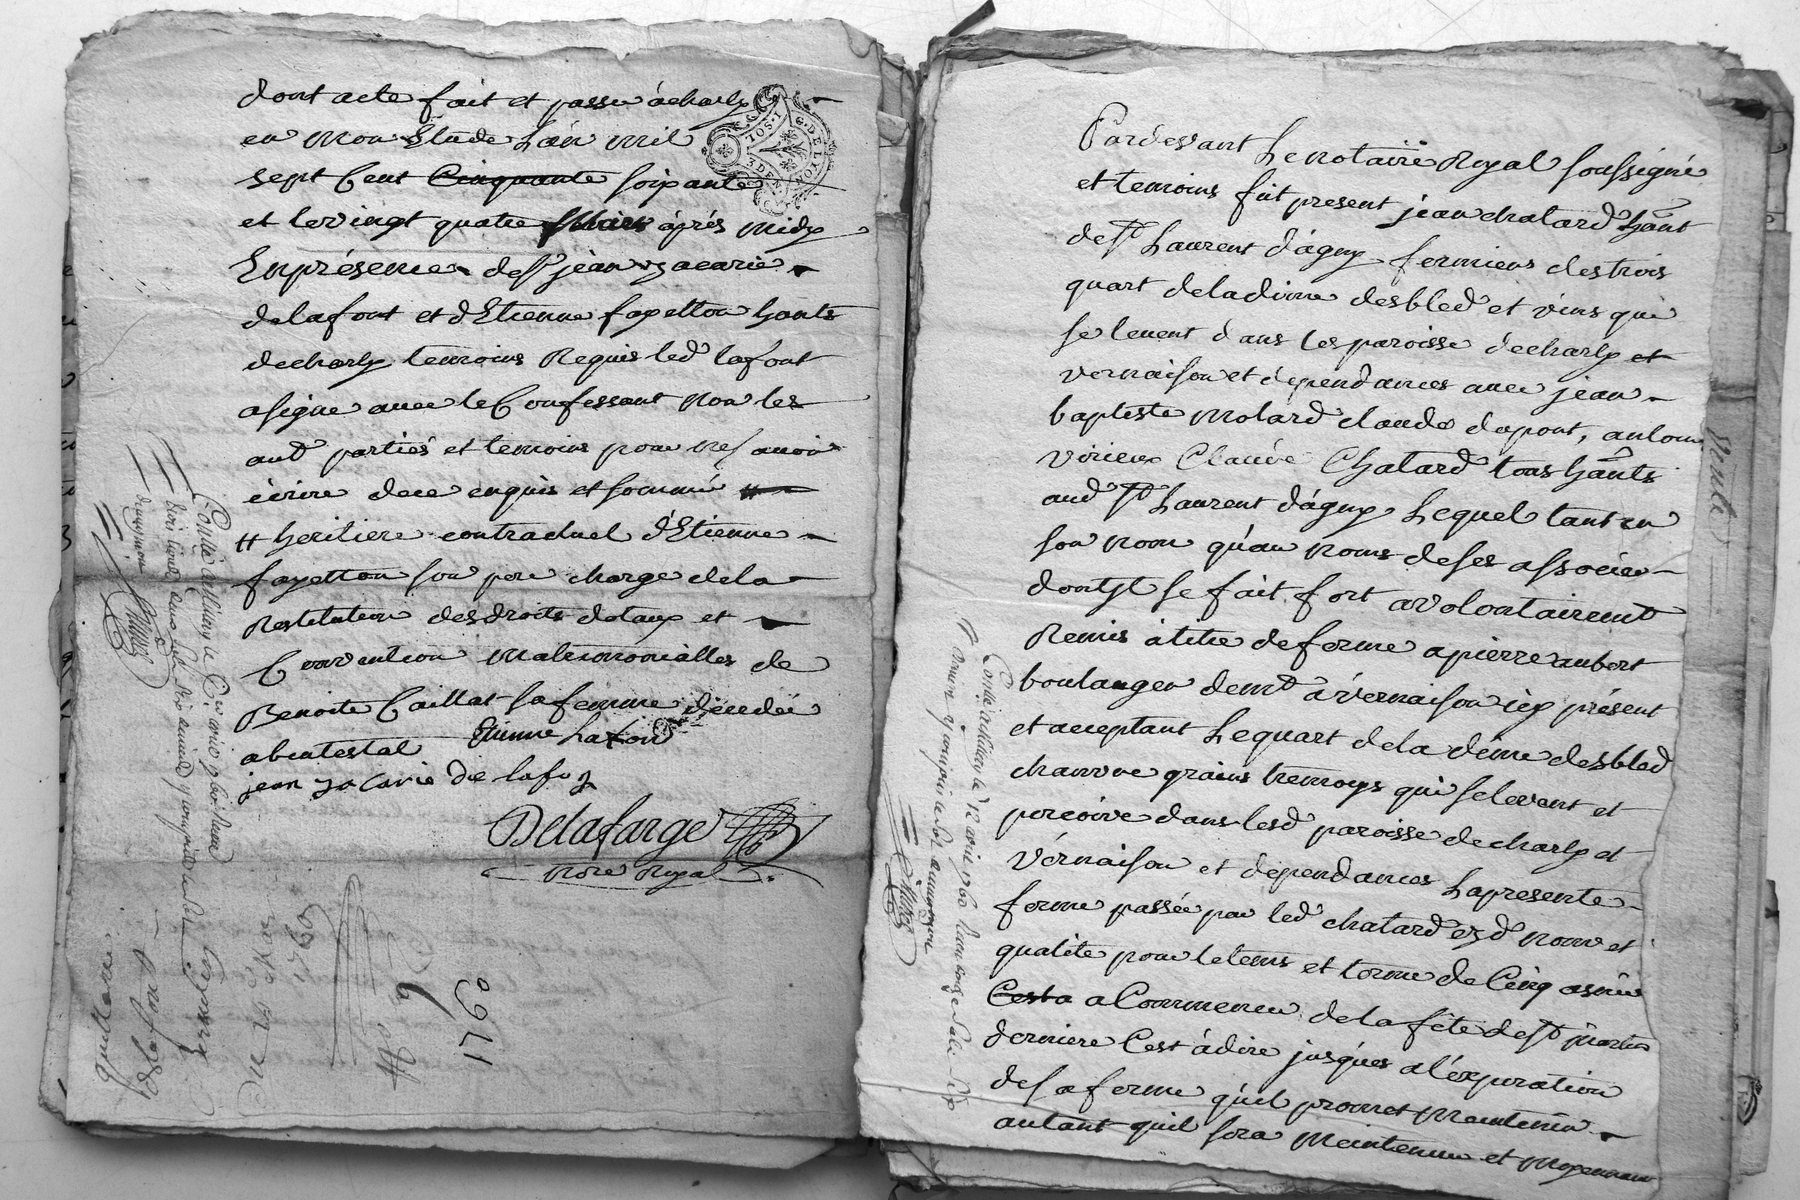 dont acte fait et passé à charly
en mon Etude L'an mil
sept Cent Cinquante soixante
et le vingt quatre Mars après midy
En présence de Sr jean zacarie
delafont et d'Etienne fayetton hants
de charly temoins Requis led lafont
a signé avec le Confessant non les
autd parties et temoins pour ne savoir
écrire de ce enquis et sommé #
# heritiere contractuel d'Etienne
fayetton son pere charge de la
Restitution des droits dotaux et
Convention matrimonialles de
Benoite Caillat sa femme décédée
abintestat Etienne Lafont
jean zacarie de lafon
Delafarge
Nore Royal
I. SOL
3. DEN
G. DE LYON
quittance
delafont
Du 24 Mars
1760
1760
Pardevant Le notaire Royal soussigné
et temoins fut present jean chatard hant
de St Laurent d'agny fermiers des trois
quart de la dime des bled et vins qui
se levent dans les paroisse de charly et
vernaison et dependances avec jean
baptiste Molard claude dupont, antoine
virieux Claude Chatard tous hants
aud St Laurent d'agny Lequel tant en
son nom qu'au noms de ses associés
dont Jl se fait fort a volontairemt
Remis à titre de ferme a pierre aubert
boulanger demt à vernaison icy présent
et acceptant Le quart de la dime des bled
chanvre grains tremoys qui se levent et
percoive dans lesd paroisse de charly et
vernaison et dependances La presente
ferme passée par led chatard esd nom et
qualité pour le tems et terme de Cinq année
Cesta a Commencé de la fête de St martin
derniere C'est à dire jusques a l'éxpiration
de sa ferme qu'il promet maintenir
autant quil sera Maintenu et Moyennant